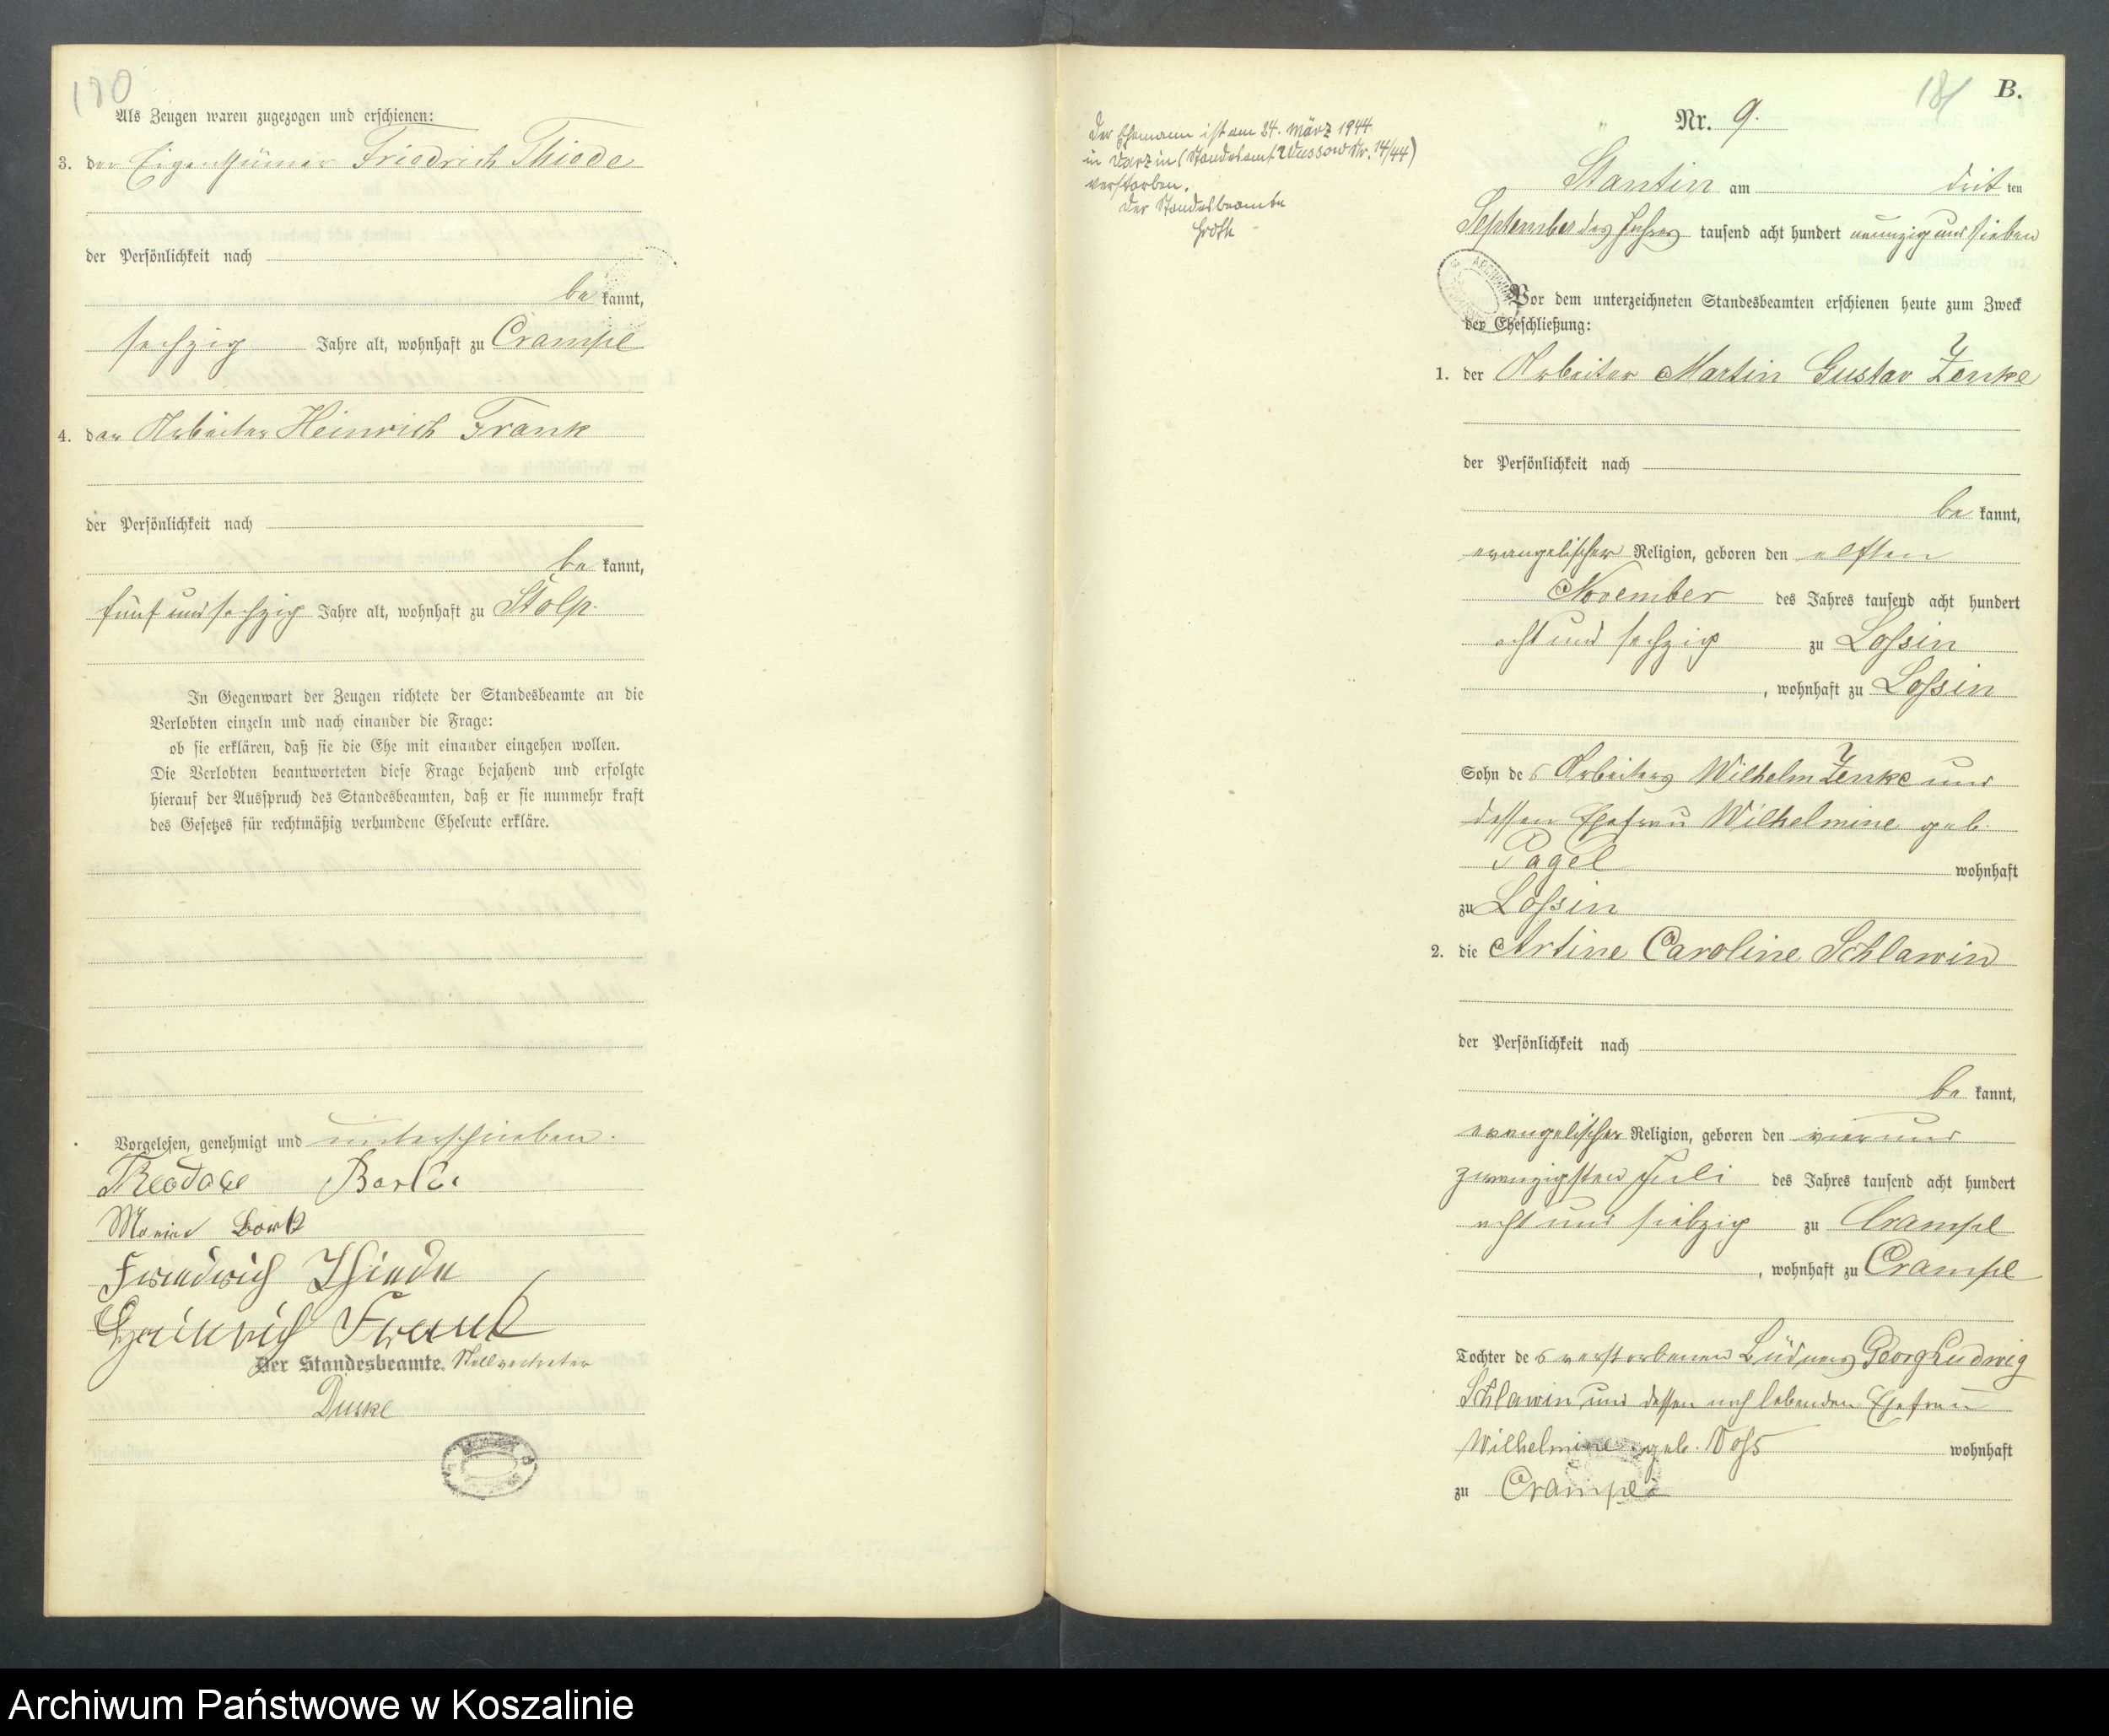 180
Als Zeugen waren zugezogen und erschienen:
3. der Eigenthümer Friedrich Thiede
der Persönlichkeit nach
be kannt,
sechzig Jahre alt, wohnhaft zu Crampe
4. der Arbeiter Heinrich Frank
der Persönlichkeit nach
be kannt,
fünf und sechzig Jahre alt, wohnhaft zu Stolp.
In Gegenwart der Zeugen richtete der Standesbeamte an die
Verlobten einzeln und nach einander die Frage:
ob sie erklären, daß sie die Ehe mit einander eingehen wollen.
Die Verlobten beantworteten diese Frage bejahend und erfolgte
hierauf der Ausspruch des Standesbeamten, daß er sie nunmehr kraft
des Gesetzes für rechtmäßig verbundene Eheleute erkläre.
Vorgelesen, genehmigt und unterschrieben.
Bork
Friedrich Thiede
Heinrich Frank
Der Standesbeamte. Stellvertreter
Duske
Der Ehemann ist am 24. März 1944
in Varzin (Standesamt Wussow Nr. 14/44)
verstorben.
Der Standesbeamte
Groth
181
B.
Nr. 9.
Stantin am dritten
September des Jahres tausend acht hundert neunzig und sieben
Vor dem unterzeichneten Standesbeamten erschienen heute zum Zweck
der Eheschließung:
1. der Arbeiter Martin Gustav Zenke
der Persönlichkeit nach
be kannt,
evangelischer Religion, geboren den elften
November des Jahres tausend acht hundert
acht und sechzig zu Lossin
, wohnhaft zu Lossin
Sohn des Arbeiters Wilhelm Zenke und
dessen Ehefrau Wilhelmine geb.
Pagel wohnhaft
zu Lossin
2. die Artine Caroline Schlawin
der Persönlichkeit nach
be kannt,
evangelischer Religion, geboren den vier und
zwanzigsten Juli des Jahres tausend acht hundert
acht und siebzig zu Crampe
, wohnhaft zu Crampe
Tochter des verstorbenen Büdners Georg Ludwig
Schlawin und dessen noch lebenden Ehefrau
Wilhelmine geb. Voss wohnhaft
zu Crampe
Archiwum Państwowe w Koszalinie